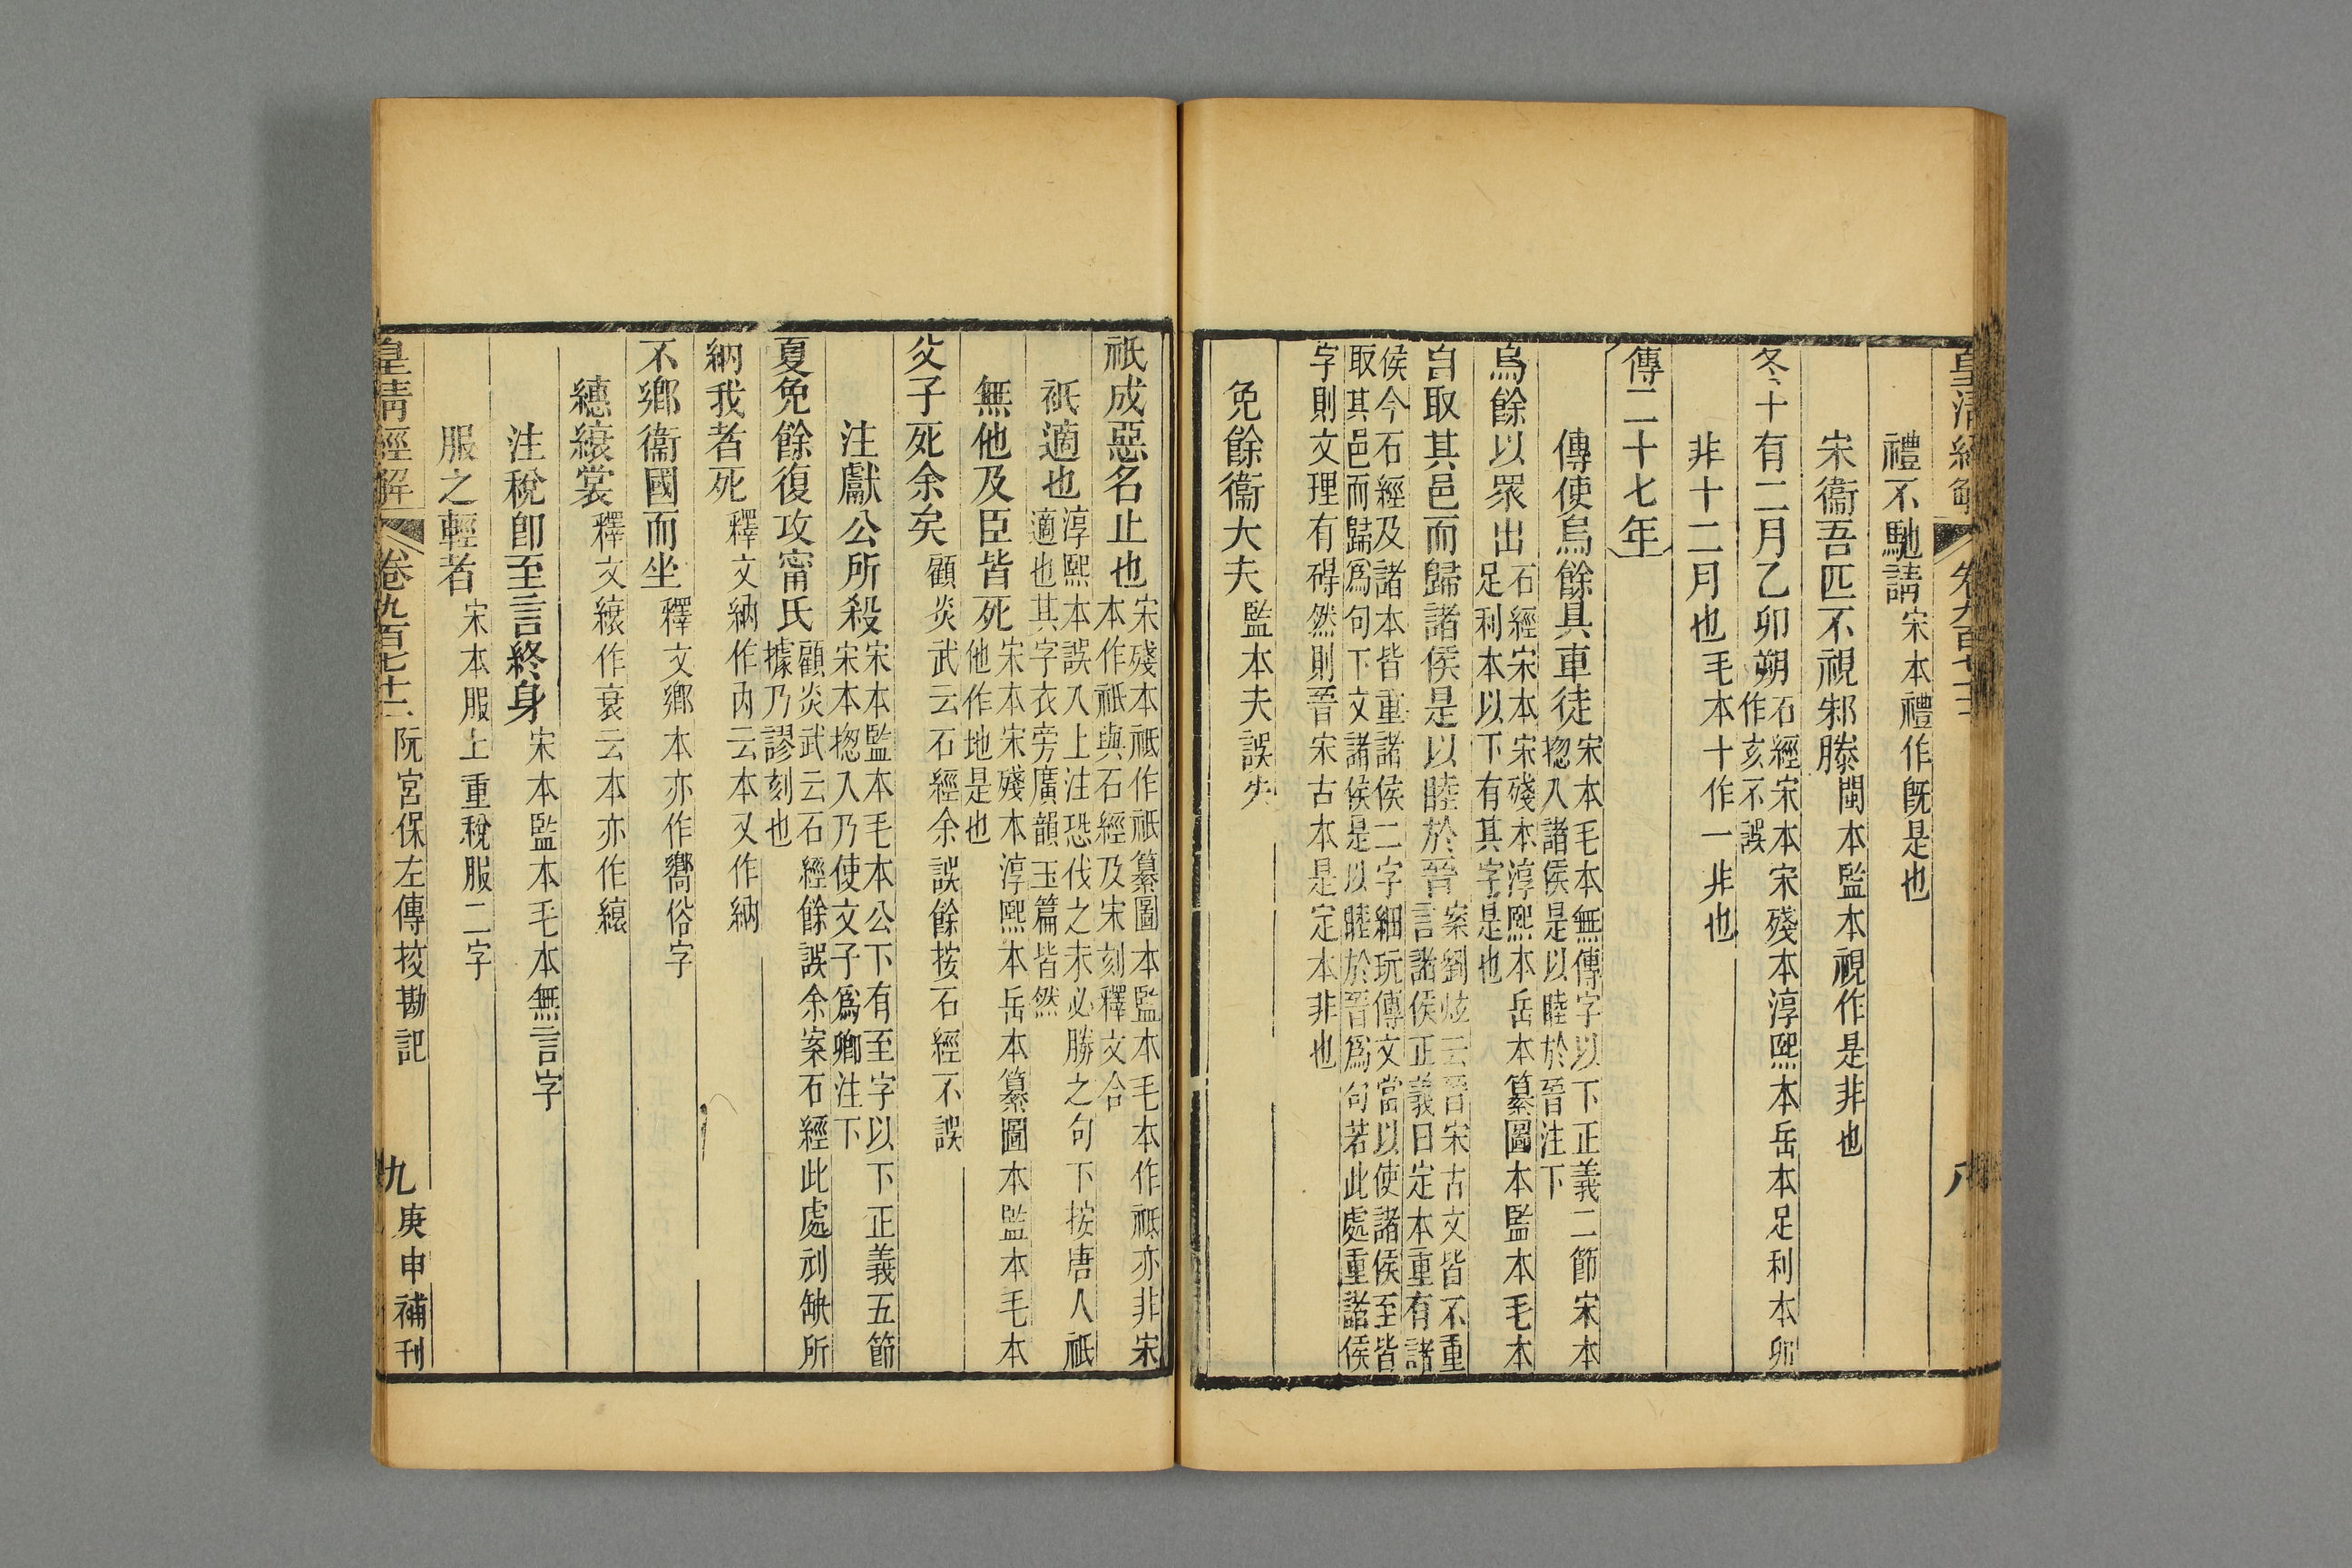 皇清經解 卷九百七十二 八
禮不馳請宋本禮作旣是也
宋衞吾匹不視邾滕閩本監本視作是非也
冬十有二月乙卯朔石經宋本宋殘本淳熙本岳本足利本卯作亥不誤
非十二月也毛本十作一非也
傳二十七年
傳使烏餘具車徒宋本毛本無傳字以下正義二節宋本揔入諸侯是以睦於晉注下
烏餘以眾出石經宋本宋殘本淳熙本岳本纂圖本監本毛本足利本以下有其字是也
自取其邑而歸諸侯是以睦於晉案劉炫云晉宋古文皆不重言諸侯正義曰定本重有諸
侯今石經及諸本皆重諸侯二字細玩傳文當以使諸侯至皆取其邑而歸爲句下文諸侯是以睦於晉爲句若此處重諸侯
字則文理有碍然則晉宋古本是定本非也
免餘衞大夫監本夫誤失
祇成惡名止也宋殘本祗作祇纂圖本監本毛本作祗亦非宋本作祇與石經及宋刻釋文合
祇適也淳熙本誤入上注恐伐之未必勝之句下按唐人祇適也其字衣旁廣韻玉篇皆然
無他及臣皆死宋本宋殘本淳熙本岳本纂圖本監本毛本他作地是也
父子死余矣顧炎武云石經余誤餘按石經不誤
注獻公所殺宋本監本毛本公下有至字以下正義五節宋本揔入乃使文子爲卿注下
夏免餘復攻甯氏顧炎武云石經餘誤余案石經此處刓缺所據乃謬刻也
納我者死釋文納作內云本又作納
不鄉衞國而坐釋文鄉本亦作嚮俗字
繐縗裳釋文縗作衰云本亦作縗
注稅卽至言終身宋本監本毛本無言字
服之輕者宋本服上重稅服二字
皇清經解 卷九百七十二 阮宮保左傳挍勘記 九 庚申補刊